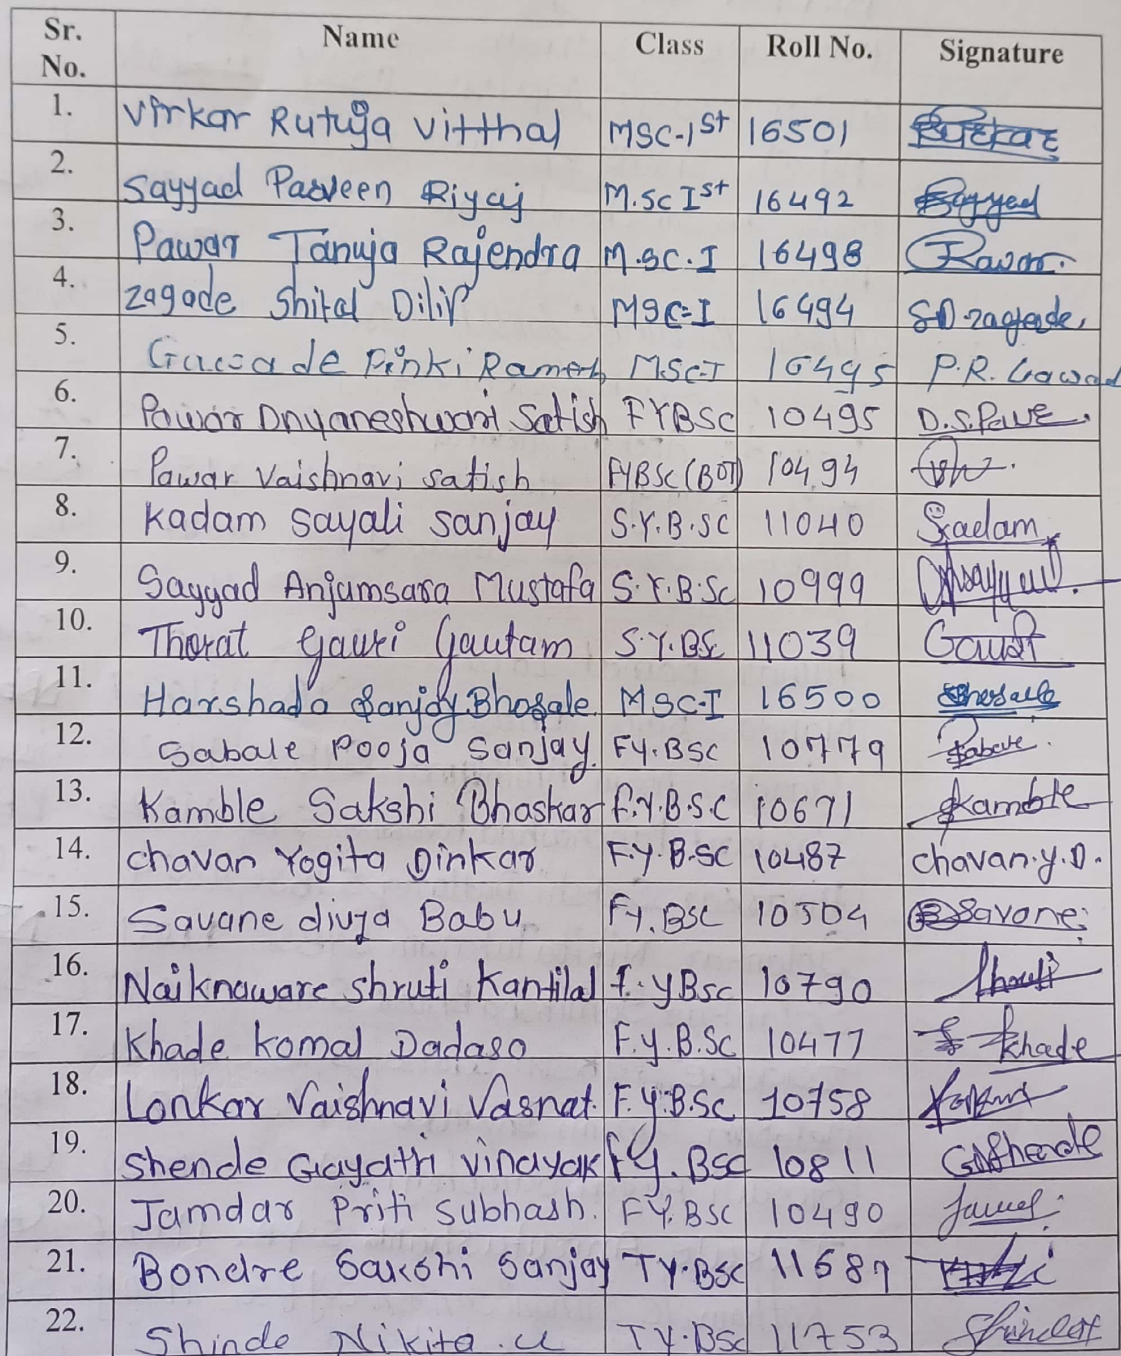 Sr. No. Name Class Roll No. Signature
1. Virkar Rutuja Vitthal MSC-Ist 16501
2. Sayyad Parveen Riyaj M.Sc Ist 16492 Sayyed
3. Pawar Tanuja Rajendra M.SC.I 16498 Pawar.
4. Zagade Shital Dilip MSC-I 16494 SD Zagade.
5. Gawade Pinki Ramesh MSC-I 16495 P.R. Gawad
6. Pawar Dnyaneshwari Satish FYBSC 10495
7. Pawar Vaishnavi Satish FYBSC (BOT) 10494
8. Kadam Sayali Sanjay S.Y.B.SC 11040
9. Sayyad Anjumsara Mustafa S.Y.B.Sc 10999
10. Thorat Gauri Gautam S.Y.BSc 11039
11. Harshada Sanjay Bhosale MSC-I 16500 Bhosale
12. Sabale Pooja Sanjay. FY.BSC 10779
13. Kamble Sakshi Bhaskar F.Y.B.S.C 10671 Kamble
14. Chavan Yogita Dinkar F.Y.B.SC 10487 Chavan.Y.D.
15. Savane divya Babu FY.BSC 10504 Savane
16. Naiknaware Shruti Kantilal F.YBsc 10790 Shruti
17. Khade Komal Dadaso F.Y.B.Sc 10477 Khade
18. Lonkar Vaishnavi Vasnat. F.Y.B.Sc 10758
19. Shende Gayatri Vinayak FY.BSC 10811 Shende
20. Jamdar Priti Subhash. FY.BSC 10490
21. Bondre Sakshi Sanjay TY.BSC 11687
22. Shinde Nikita.U TY.BSc 11753